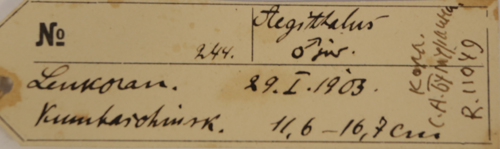 № 244.
Aegithalus
♂ juv.
Lenkoran. 29.I.1903.
Kumbaschinsk. 11,6–16,7 cm
Колл.
С.А. Бутурлина.
R. 11049